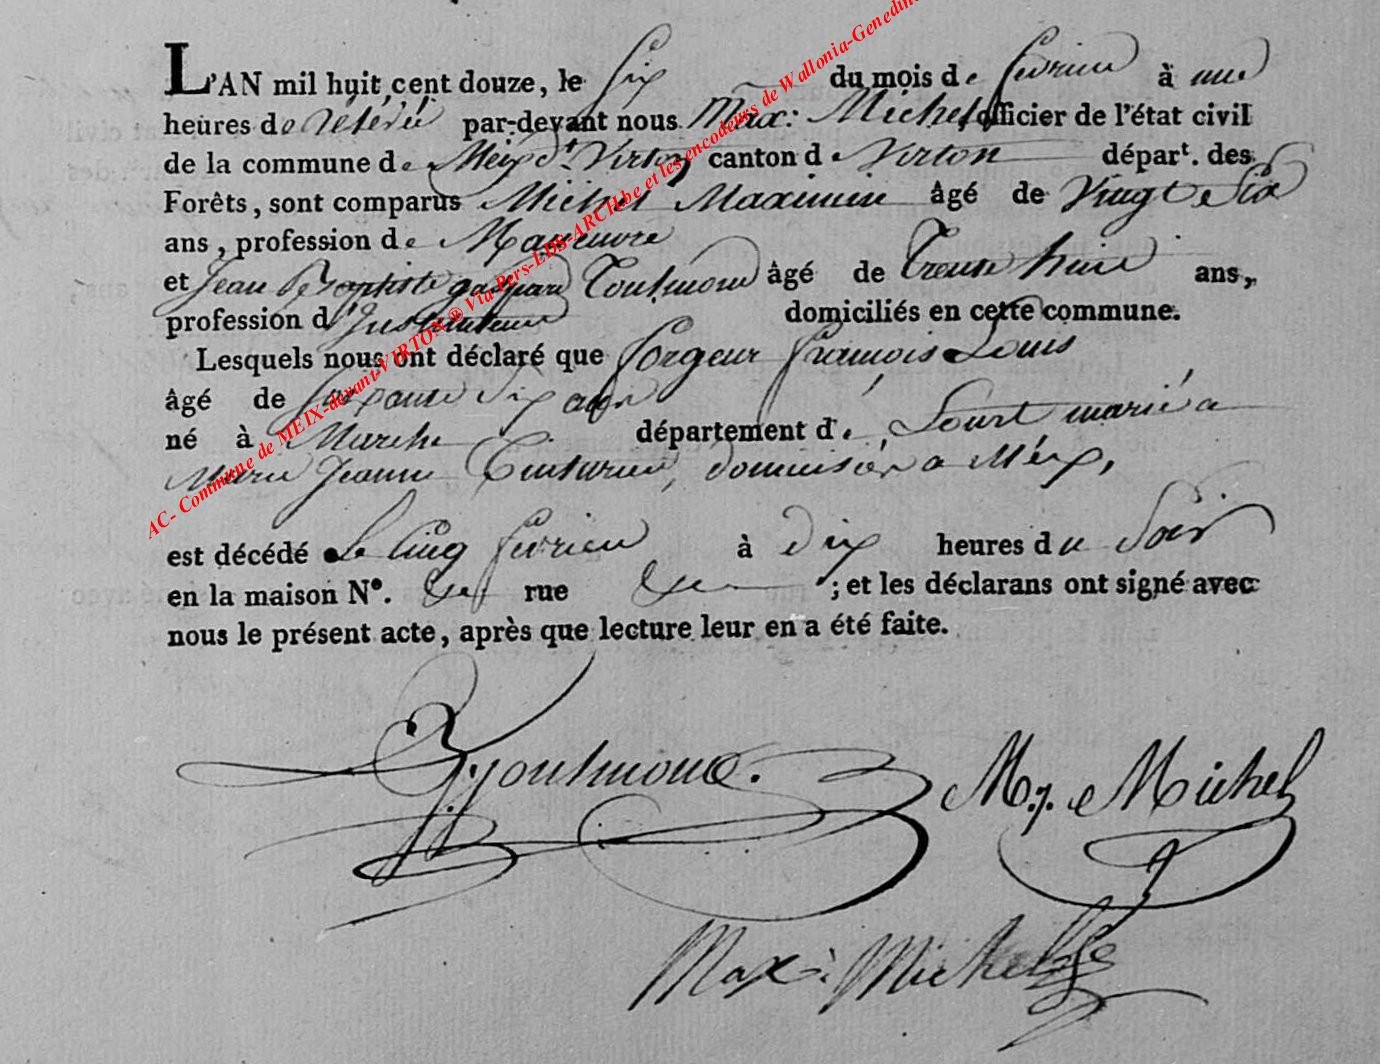 L'AN mil huit cent douze, le six du mois de fevrier à une
heures de relevée par-devant nous Max: Michel officier de l'état civil
de la commune de Meix dt Virton canton de Virtonépart. des
Forêts, sont comparus Michel Maximin âgé de vingt six
ans, profession de Maneuvre
et Jean Baptiste gaspard Toutmond âgé de trente huit ans,
profession d'Instituteur domiciliés en cette commune.
Lesquels nous ont déclaré que forgeur françois Louis
âgé de soixante dix ans
né à Marche département de, Sourt marié a
Marie Jeanne domicilié a Méix,
est décédé le cinq fevrier à dix heures du Soir
en la maison N°. rue ; et les déclarans ont signé avec
nous le présent acte, après que lecture leur en a été faite.
Toutmond. M.j. Michel
Max: Michel
AC- Commune de MEIX-devant-VIRTON ® Via Pers-LDS-ARCH.be et les encodeurs de Wallonia-Genedin